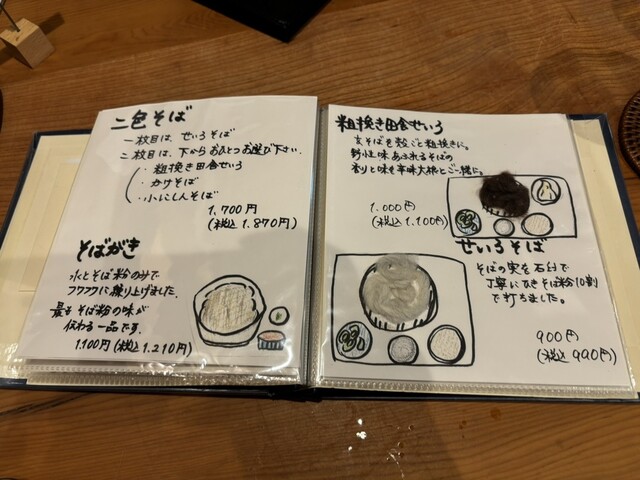 二色そば
一枚目は、せいろそば
二枚目は、下からおひとつお選び下さい.
・粗挽き田舎せいろ
・かけそば
・小にしんそば
1,700円
(税込 1.870円)
そばがき
水とそば粉のみで
フワフワに練り上げました.
最もそば粉の味が
伝わる一品です.
1.100円(税込 1.210円)
粗挽き田舎せいろ
玄そばを殻ごと粗挽きに。
野性味あふれるそばの
香りと味を辛味大根とご一緒に。
1.000円
(税込 1,100円)
せいろそば
そばの実を石臼で
丁寧にひきそば粉10割
で打ちました。
900円
(税込 990円)